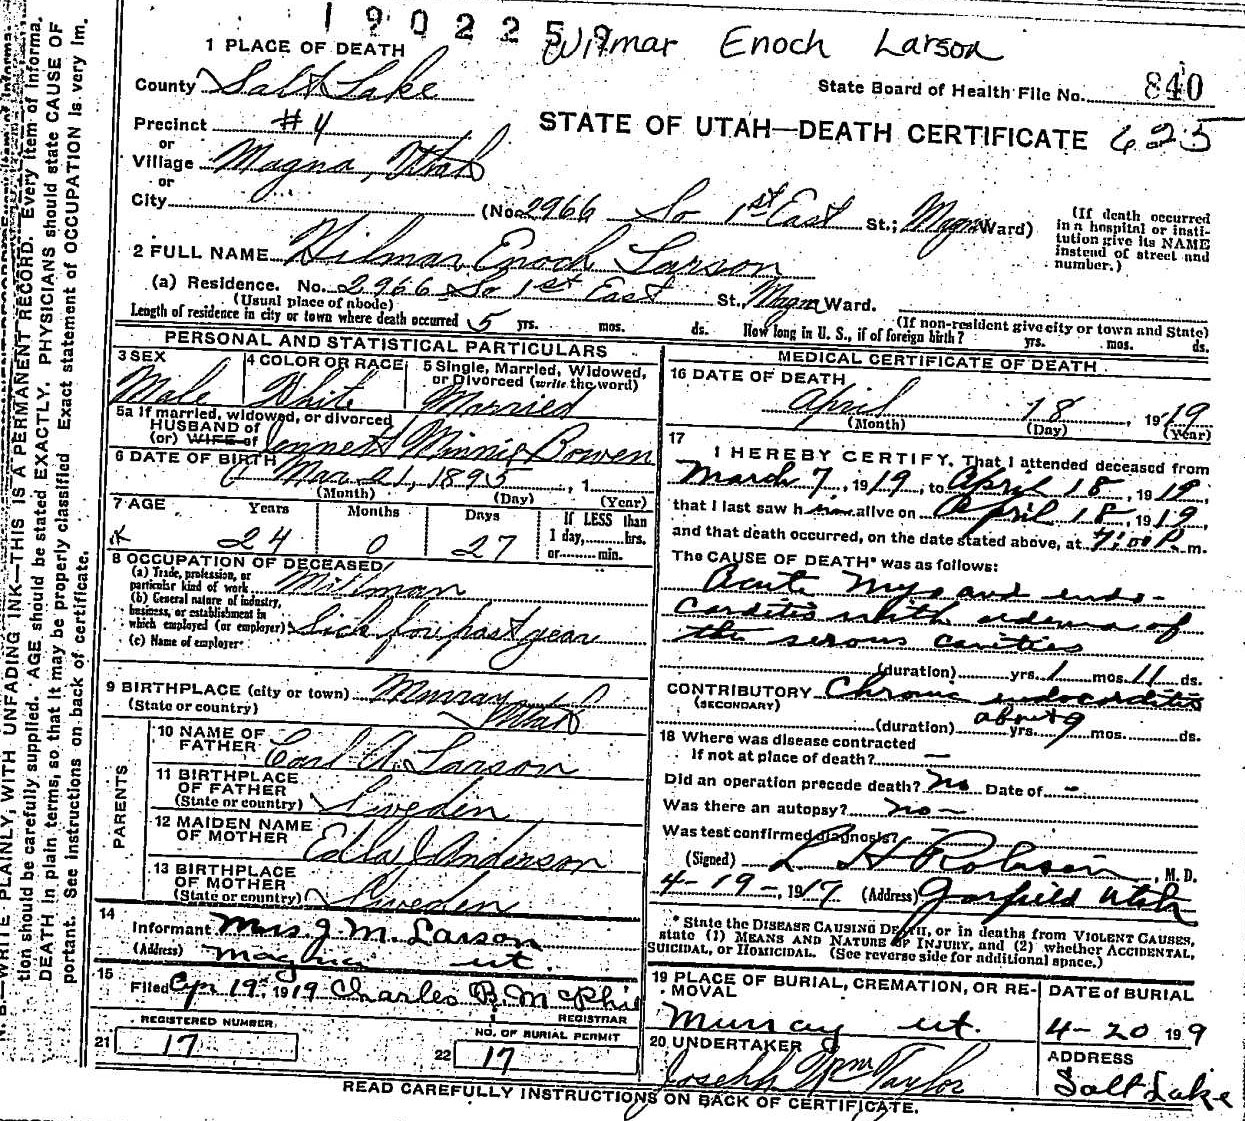 1902259
Wilmar Enoch Larson
1 PLACE OF DEATH
County Salt Lake
State Board of Health File No. 840
Precinct #4
STATE OF UTAH—DEATH CERTIFICATE 625
or
Village Magna, Utah
or
City (No. 2966 So 1st East St.; Magna Ward)
(If death occurred in a hospital or insti-
tution give its NAME
instead of street and
number.)
2 FULL NAME Hilmar Enoch Larson
(a) Residence. No. 2966 So 1st East St., Magna Ward.
(Usual place of abode)
(If non-resident give city or town and State)
Length of residence in city or town where death occurred 5 yrs. mos. ds. How long in U. S., if of foreign birth? yrs. mos. ds.
PERSONAL AND STATISTICAL PARTICULARS
3 SEX
Male
4 COLOR OR RACE
White
5 Single, Married, Widowed,
or Divorced (write the word)
Married
5a If married, widowed, or divorced
HUSBAND of
(or) WIFE of Jennett Minnie Bowen
6 DATE OF BIRTH Mar 21, 1895, 1
(Month) (Day) (Year)
7 AGE Years Months Days If LESS than
1 day, hrs.
24 0 27 or min.
8 OCCUPATION OF DECEASED
(a) Trade, profession, or
particular kind of work Millman
(b) General nature of industry,
business, or establishment in
which employed (or employer) Sick for past year
(c) Name of employer
9 BIRTHPLACE (city or town) Murray
(State or country) Utah
PARENTS
10 NAME OF
FATHER Carl A. Larson
11 BIRTHPLACE
OF FATHER
(State or country) Sweden
12 MAIDEN NAME
OF MOTHER Edla J Anderson
13 BIRTHPLACE
OF MOTHER
(State or country) Sweden
14
Informant Mrs J. M. Larson
(Address) Magna ut.
15
Filed Apr 19, 1919 Charles B. McPhie
REGISTRAR
REGISTERED NUMBER.
21 17
NO. OF BURIAL PERMIT
22 17
MEDICAL CERTIFICATE OF DEATH
16 DATE OF DEATH
April 18, 1919
(Month) (Day) (Year)
17
I HEREBY CERTIFY, That I attended deceased from
March 7, 1919, to April 18, 1919,
that I last saw him alive on April 18, 1919,
and that death occurred, on the date stated above, at 7:00 P. m.
The CAUSE OF DEATH* was as follows:
Acute Myo and endo-
carditis with edema of
the serous cavities
(duration) yrs. 1 mos. 11 ds.
CONTRIBUTORY Chronic endocarditis
(SECONDARY)
(duration) about 9 yrs. mos. ds.
18 Where was disease contracted
If not at place of death? —
Did an operation precede death? No Date of —
Was there an autopsy? no —
Was test confirmed diagnosis? —
(Signed) L H Robison, M. D.
4-19-, 1919 (Address) Garfield Utah
* State the DISEASE CAUSING DEATH, or in deaths from VIOLENT CAUSES,
state (1) MEANS AND NATURE OF INJURY, and (2) whether ACCIDENTAL,
SUICIDAL, or HOMICIDAL. (See reverse side for additional space.)
19 PLACE OF BURIAL, CREMATION, OR RE-
MOVAL
Murray ut.
DATE of BURIAL
4-20 199
20 UNDERTAKER
Joseph Wm Taylor
ADDRESS
Salt Lake
READ CAREFULLY INSTRUCTIONS ON BACK OF CERTIFICATE.
N. B.—WRITE PLAINLY, WITH UNFADING INK—THIS IS A PERMANENT RECORD. Every item of informa-
tion should be carefully supplied. AGE should be stated EXACTLY. PHYSICIANS should state CAUSE OF
DEATH in plain terms, so that it may be properly classified. Exact statement of OCCUPATION is very im-
portant. See instructions on back of certificate.